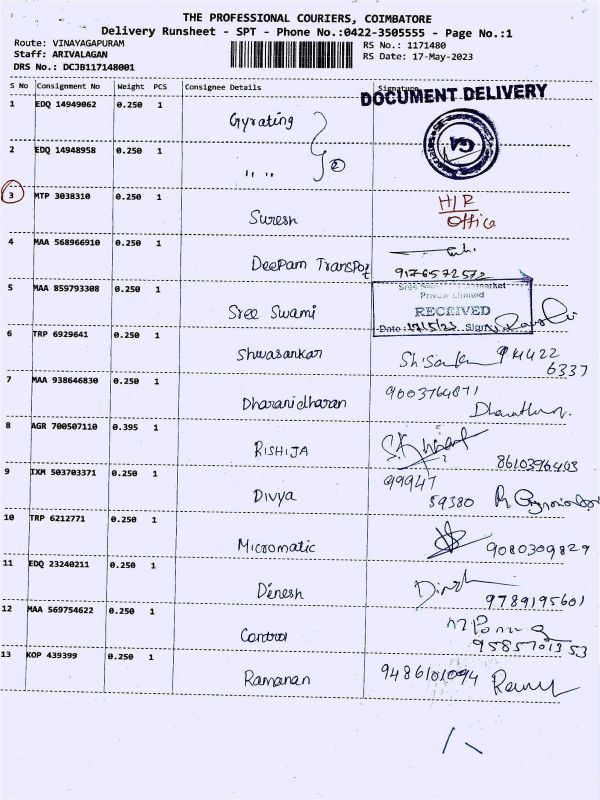 THE PROFESSIONAL COURIERS, COIMBATORE
Delivery Runsheet - SPT - Phone No.:0422-3505555 - Page No.:1
Route: VINAYAGAPURAM
Staff: ARIVALAGAN
DRS No.: DCJB117148001
RS No.: 1171480
RS Date: 17-May-2023
S No Consignment No Weight PCS Consignee Details Signature
DOCUMENT DELIVERY
1 EDQ 14949062 0.250 1 Gyrating
2 EDQ 14948958 0.250 1 " " 2
GA
3 MTP 3038310 0.250 1 Suresh H/R
Office
4 MAA 568966910 0.250 1 Deepam Transpot
9176572572
5 MAA 859793308 0.250 1 Sree Swami
Private Limited
RECEIVED
Date: 17/5/23 Sign
6 TRP 6929641 0.250 1 Shivasankar 94422
6337
7 MAA 938646830 0.250 1 Dharanidharan 9003764871
8 AGR 700507110 0.395 1 RISHIJA
8610396493
9 IXM 503703371 0.250 1 Divya 99947
59380
10 TRP 6212771 0.250 1 Micromatic 9080309829
11 EDQ 23240211 0.250 1 Dinesh
9789195601
12 MAA 569754622 0.250 1 Control
9585701353
13 KOP 439399 0.250 1 Ramanan 9486101094